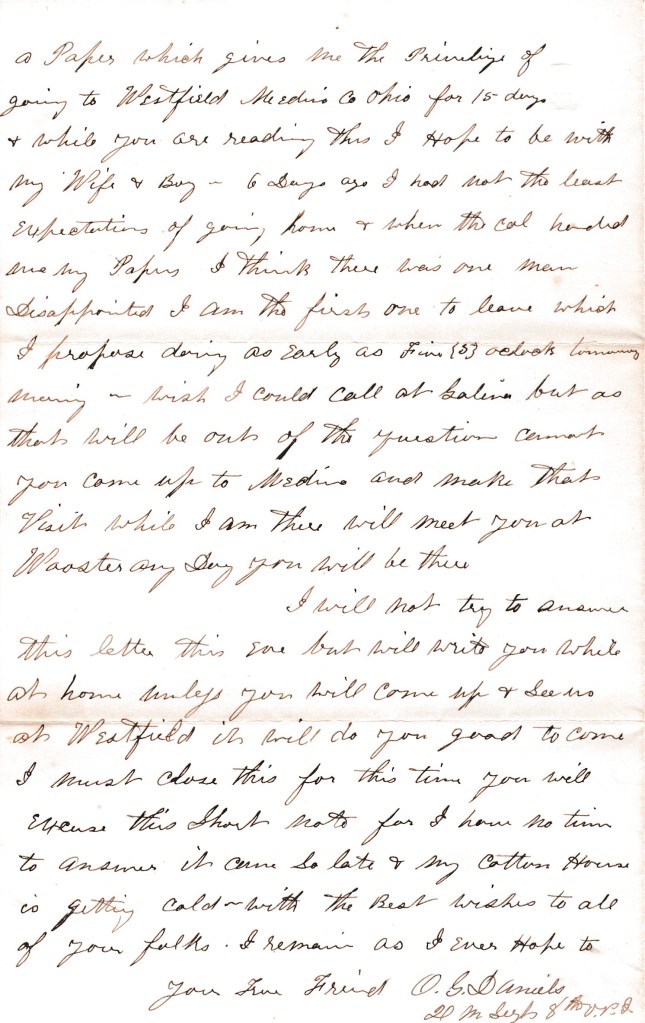 a Paper which gives me the Privilige of
going to Westfield Medina Co Ohio for 15 days
& while you are reading this I Hope to be with
my Wife & Boy ~ 6 Days ago I had not the least
Expectations of going home & when the Col handed
me my Papers I think there was one man
Disappointed I am the first one to leave which
I propose doing as Early as Five {5} oclock tomorrow
morning ~ wish I could call at Galena but as
that will be out of the question cannot
you come up to Medina and make that
Visit while I am there will meet you at
Wooster any Day you will be there
I will not try to answer
this letter this Eve but will write you while
at home unless you will come up & See us
at Westfield it will do you good to come
I must close this for this time you will
Excuse this Short note for I have no time
to answer it came So late & my Cotton House
is getting cold ~ with the Best wishes to all
of your folks. I remain as I Ever Hope to
Your True Friend O. G. Daniels
2d M Sergt 8th O.V.I.